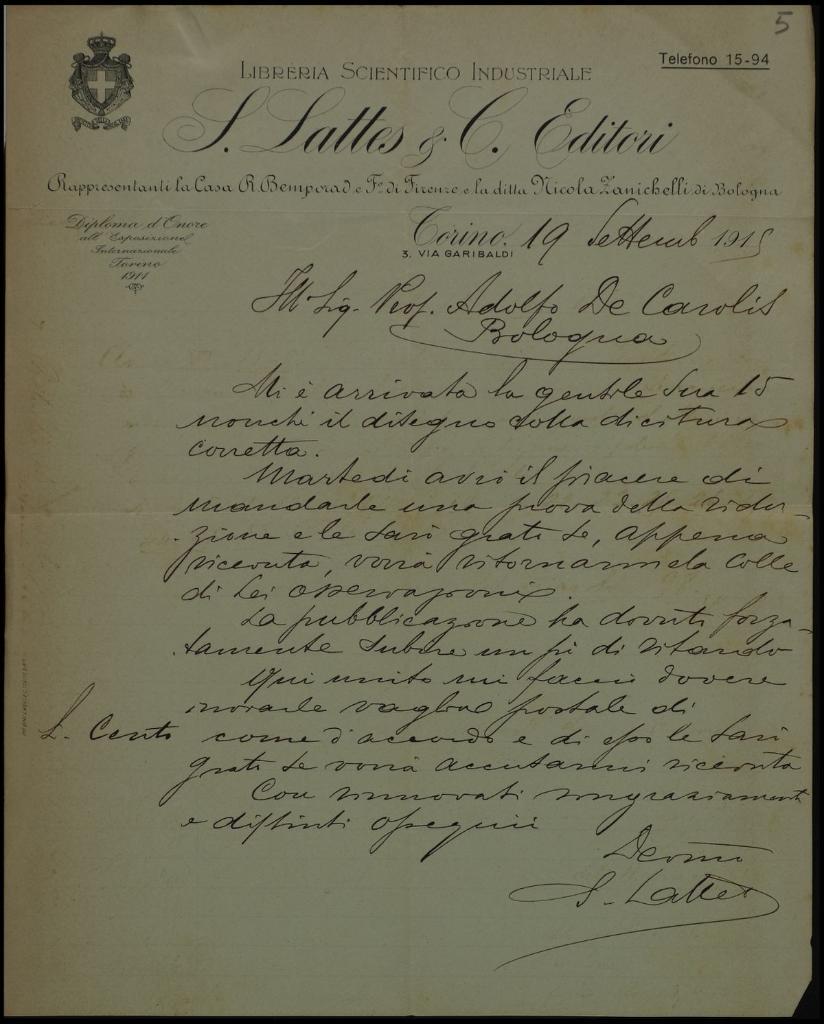 5
Telefono 15-94
LIBRERIA SCIENTIFICO INDUSTRIALE
S. Lattes & C. Editori
Rappresentanti la Casa R. Bemporad e Fo. di Firenze e la ditta Nicola Zanichelli di Bologna
Diploma d'Onore
all'Esposizione
Internazionale
Torino
1911
Torino, 19 Settemb 1915
3, VIA GARIBALDI
Ill Sig. Prof. Adolfo De Carolis
Bologna
Mi è arrivata la gentile sua 15
nonchè il disegno colla dicitura
corretta.
Martedi avrò il piacere di
mandarle una prova della ridu-
zione e le sarò grato se, appena
ricevuta, vorrà ritornarmela colle
di Lei osservazioni.
La pubblicazione ha dovuto forza-
tamente subire un pò di ritardo
Qui unito mi faccio dovere
inviarle vaglia postale di
L. Cento come d'accordo e di esso le sarò
grato se vorrà accusarmi ricevuta
Con rinnovati ringraziamenti
e distinti ossequi
Devmo
S. Lattes